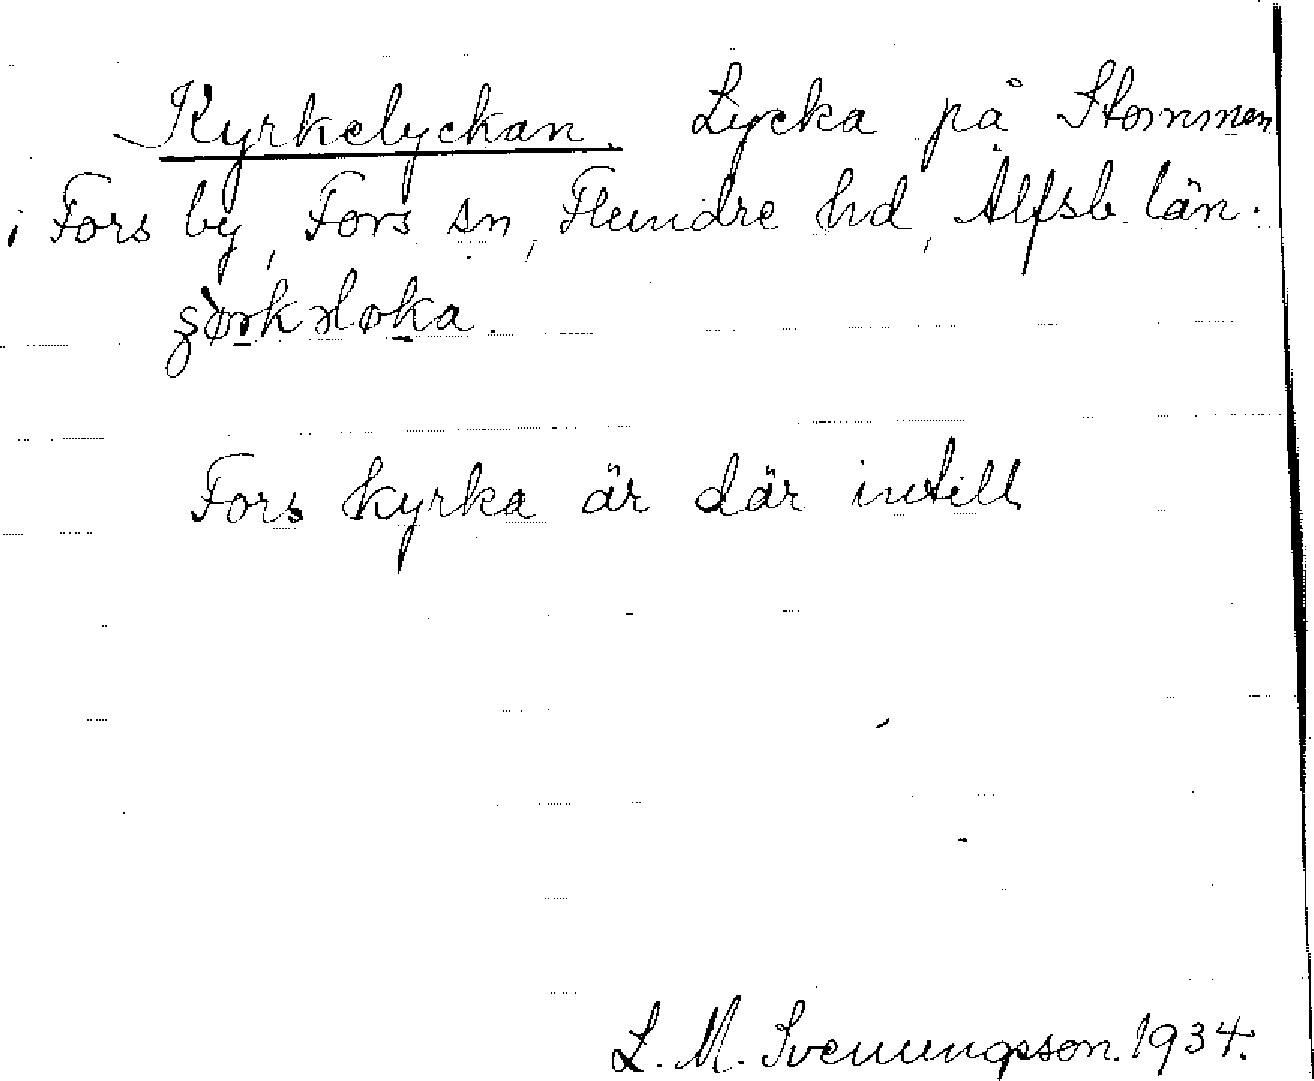 Kyrkelyckan. Lycka på Stommen
i Fors by, Fors sn, Flundre hd, Älfsb. län.
Fors kyrka är där intill
L. M. Svenungsson. 1934.